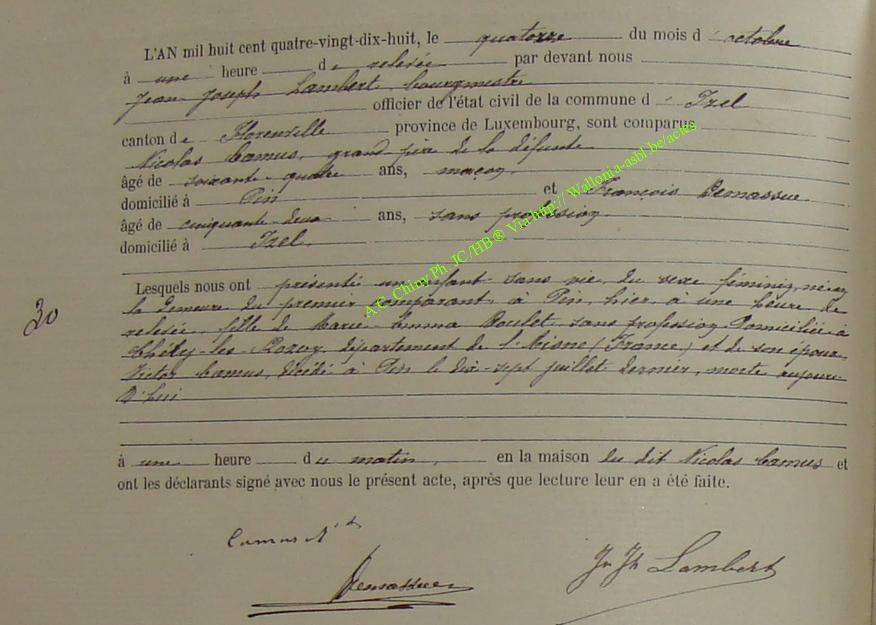 L'AN mil huit cent quatre-vingt-dix-huit, le quatorze du mois d'octobre
à une heure de relevée par devant nous
Jean Joseph Lambert, bourgmestre
officier de l'état civil de la commune d'Izel
canton de Florenville province de Luxembourg, sont comparus
Nicolas Camus, grand père de la défunte
âgé de soixante-quatre ans, maçon,
domicilié à Pin et François Demassue
âgé de cinquante-deux ans, sans profession,
domicilié à Izel.
Lesquels nous ont présenté un enfant sans vie, du sexe féminin, né en
la demeure du premier comparant, à Pin, hier à une heure de
relevée, fille de Marie-Emma Boulet, sans profession, domiciliée à
les-Rozoy, département de l'Aisne (France) et de son époux
Victor Camus, décédé à Pin le dix-sept juillet dernier, morte aujour-
d'hui
30
à une heure du matin, en la maison du dit Nicolas Camus et
ont les déclarants signé avec nous le présent acte, après que lecture leur en a été faite.
Camus N.
Demassue
Jn Jh Lambert
A.C. Chiny Ph. JC/HB® Via http:// Wallonia-asbl.be/actes